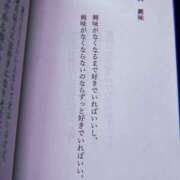 興味
興味がなくなるまで好きでいればいいし、
興味がなくならないのならずっと好きでいればいい。